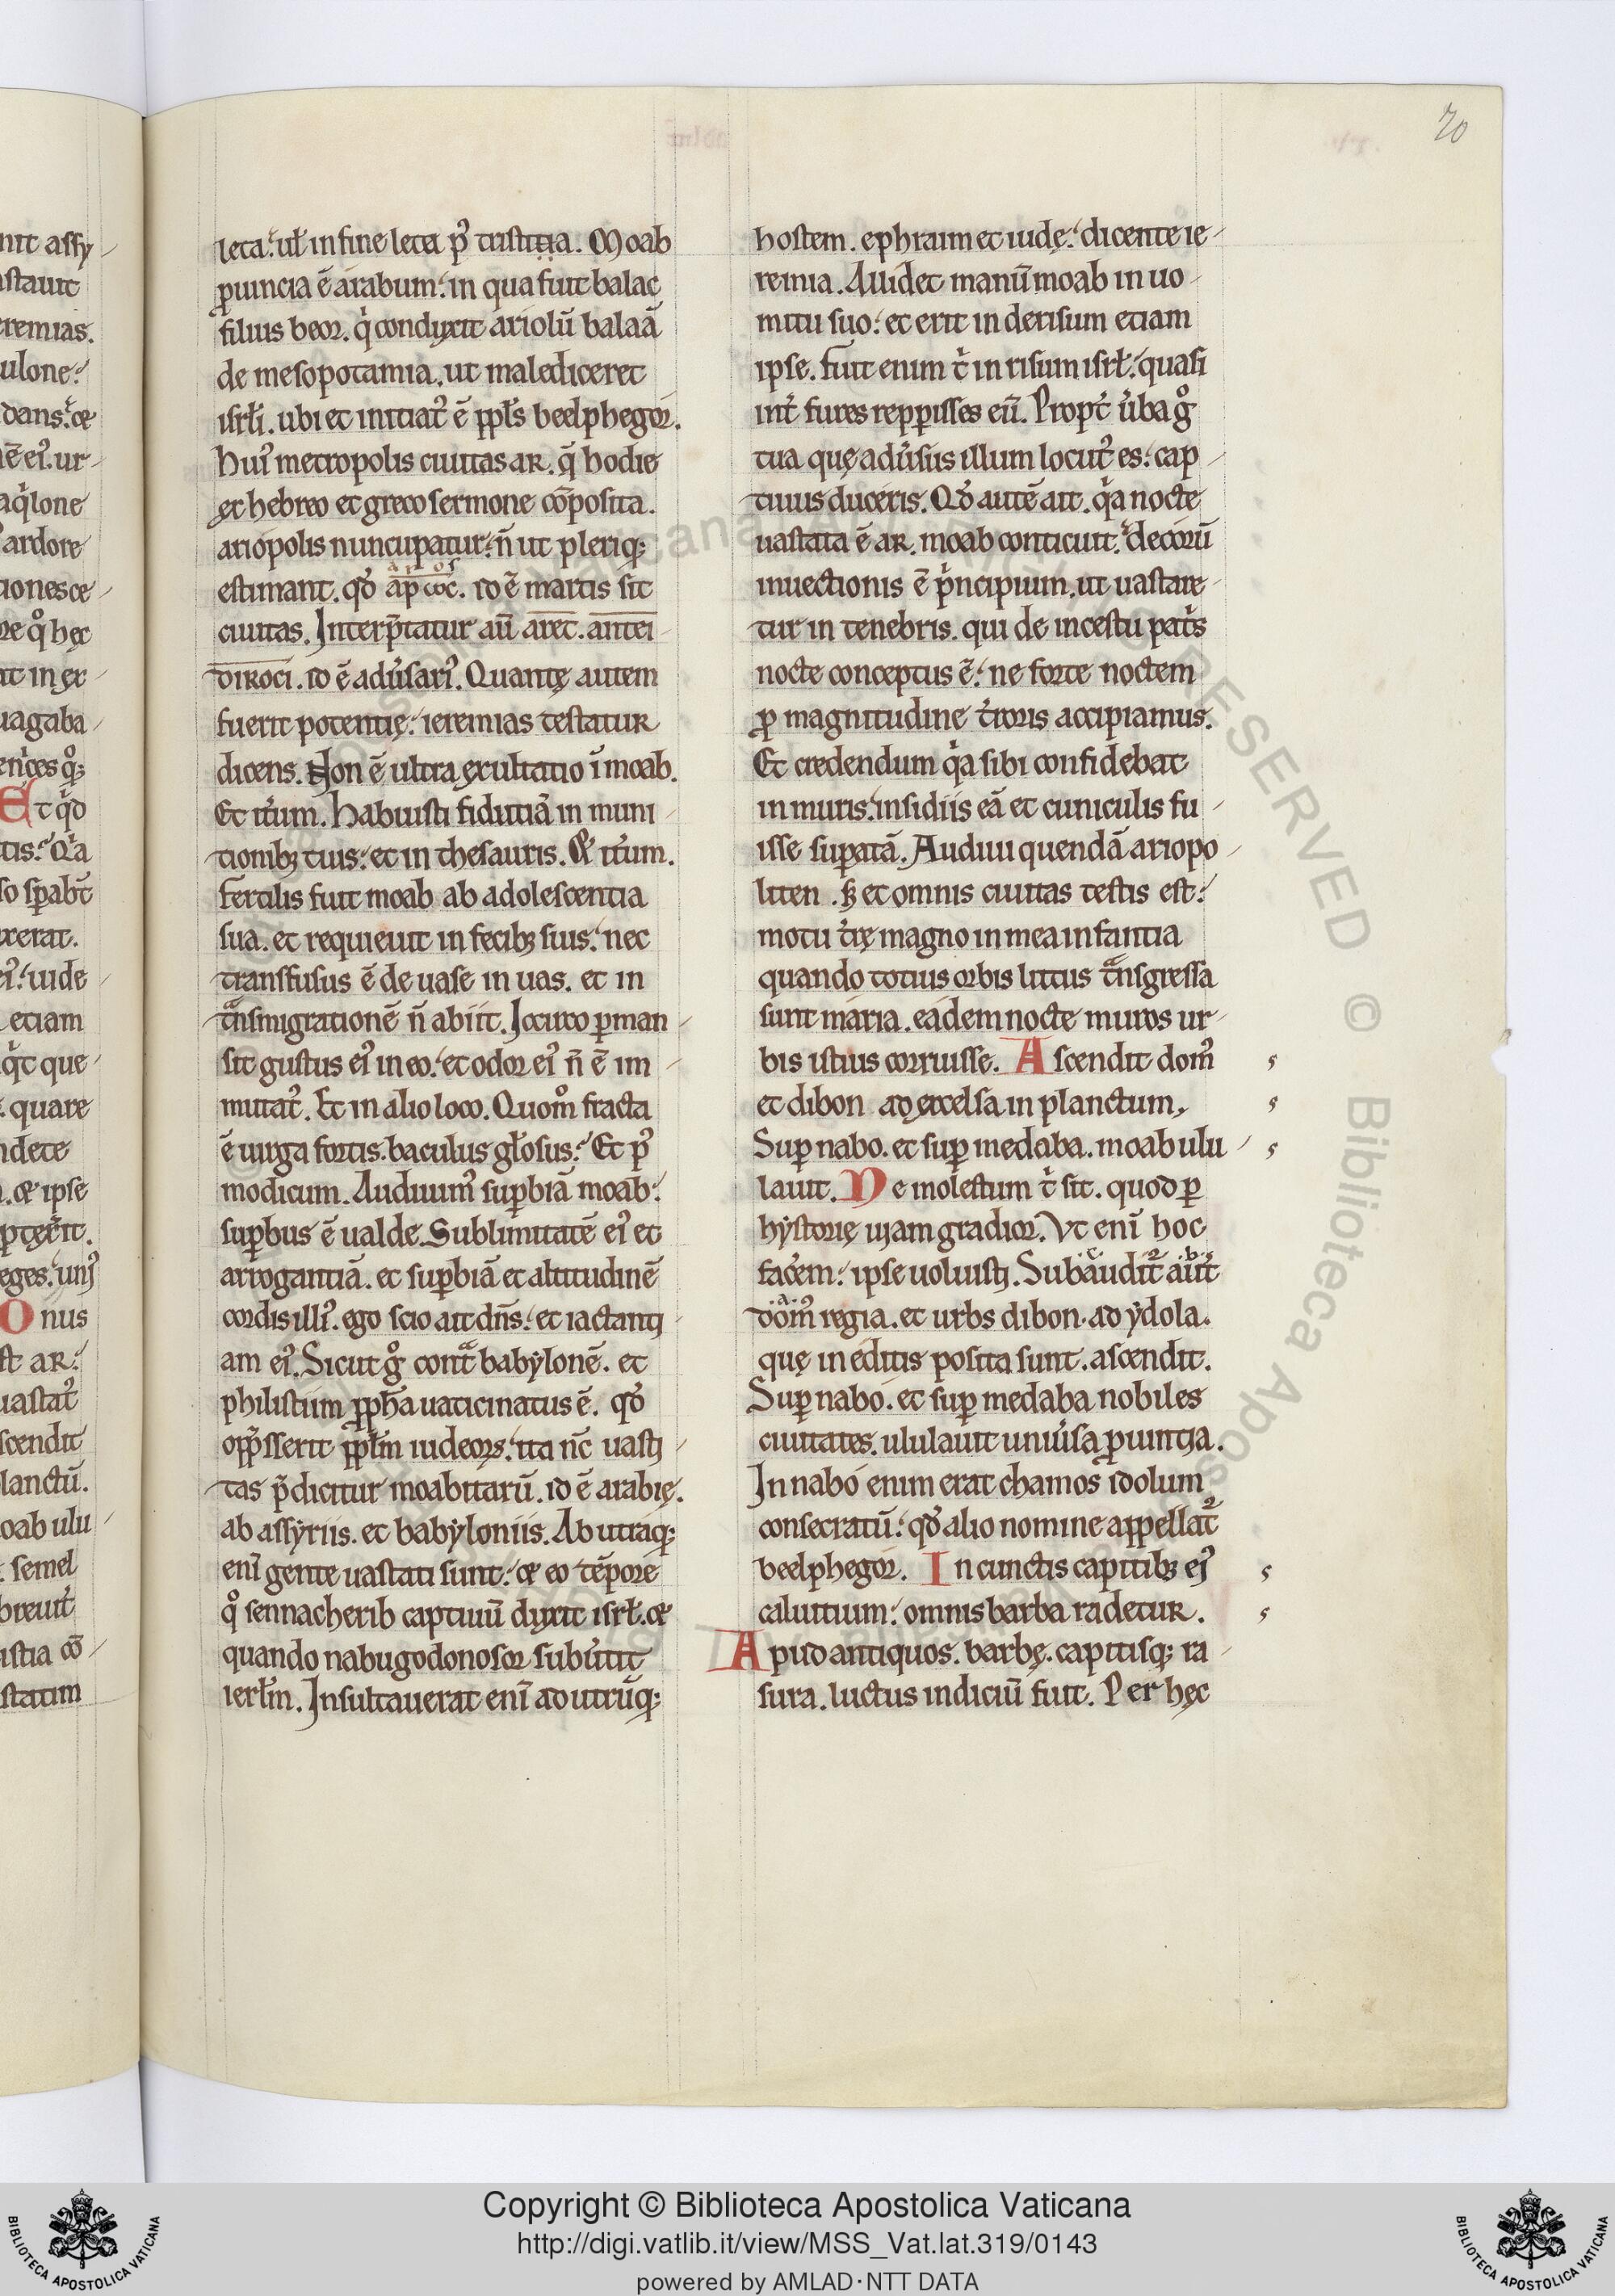 70
leta. ul̃ in fine leta p᷒ tristitia. Moab
ꝓuincia ẽ arabum. in qua fuit balac
filius beor. q̇ conduxit ariolũ balaã
de mesopotamia. ut malediceret
isrl̃i. ubi et initiat᷒ ẽ ppl̃s beelphegor.
hui᷒ metropolis ciuitas ar. q̃ hodie
ex hebreo et greco sermone cõposita.
ariopolis nuncupatur. ñ ut pleriq;
estimant. qđ αρεωσ. id ẽ martis sit
ciuitas. Interp̃tatur aũ aret. antei-
diroci. id ẽ adũsari᷒. Quantę autem
fuerit potentię. ieremias testatur
dicens. Non ẽ ultra exultatio ĩ moab.
Et itũm. Habuisti fidutiã in muni-
tionibꝫ tuis. et in thesauris. & itũm.
Fertilis fuit moab ab adolescentia
sua. et requieuit in fecibꝫ suis. nec
transfusus ẽ de uase in uas. et in
t̃nsmigrationẽ ñ abiit. Iccirco ꝑman-
sit gustus ei᷒ in eo. et odor ei᷒ ñ ẽ im-
mutat᷒. Et in alio loco. Quom̊ fracta
ẽ uirga fortis. baculus gl̃osus. Et p᷒
modicum. Audiuim᷒ suꝑbiã moab.
suꝑbus ẽ ualde. Sublimitatẽ ei᷒ et
arrogantiã. et suꝑbiã et altitudinẽ
cordis illi᷒. ego scio ait dñs. et iactanti-
am ei᷒. Sicut g̊ cont̃ babylonẽ. et
philistiim ꝓph̃a uaticinatus ẽ. qđ
opp̃sserit ppl̃m iudeorꝫ. ita nc̃ uasti-
tas p̃dicitur moabitarũ. id ẽ arabię.
ab assyriis. et babyloniis. Ab utraq;
enĩ gente uastati sunt. & eo tẽpore
q̊ sennacherib captiuũ duxit isrl̃. &
quando nabugodonosor subũtit
ierl̃m. Insultauerat enĩ ad utrũq;
hostem. ephraim et iudę. dicente ie-
remia. Allidet manũ moab in uo-
mitu suo. et erit in derisum etiam
ipse. Fuit enim t̉ in risum isrl̃. quasi
int̉ fures repperisses eũ. Propt̉ ũba g̊
tua quę adũsus illum locut᷒ es. cap-
tiuus duceris. Qđ autẽ ait. q̉a nocte
uastata ẽ ar. moab conticuit. decorũ
inuectionis ẽ p̉ncipium. ut uastare-
tur in tenebris. qui de incestu pat̉s
nocte conceptus ẽ. ne forte noctem
ꝓ magnitudine t̉roris accipiamus.
Et credendum q̉a sibi confidebat
in muris. insidiis eã et cuniculis fu-
isse suꝑatã. Audiui quendã ariopo-
liten. sꝫ et omnis ciuitas testis est.
motu t̉rę magno in mea infantia
quando totius orbis litus t̃nsgressa
sunt maria. eadem nocte muros ur-
bis istius corruisse. Ascendit dom᷒
et dibon ad excelsa in planctum.
Suꝑ nabo. et suꝑ medaba. moab ulu-
lauit. Ne molestum t̉ sit. quod ꝑ
hystorię uiam gradior. Vt enĩ hoc
facẽm. ipse uoluisti. Subaudit᷑ aũt
dom᷒ regia. et urbs dibon. ad ydola.
quę in editis posita sunt. ascendit.
Suꝑ nabo. et suꝑ medaba nobiles
ciuitates. ululauit uniũsa ꝓuintia.
In nabo enim erat chamos idolum
consecratũ. qđ alio nomine appellat᷑
beelphegor. In cunctis capitibꝫ ei᷒
caluitium. omnis barba radetur.
Apud antiquos. barbę. capitisq; ra-
sura. luctus indiciũ fuit. Per hęc
Copyright © Biblioteca Apostolica Vaticana
http://digi.vatlib.it/view/MSS_Vat.lat.319/0143
powered by AMLAD·NTT DATA
BIBLIOTECA APOSTOLICA VATICANA
BIBLIOTECA APOSTOLICA VATICANA